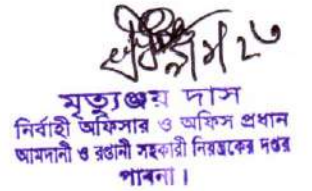 মৃত্যুঞ্জয় দাস
নির্বাহী অফিসার ও অফিস প্রধান
আমদানী ও রপ্তানী সহকারী নিয়ন্ত্রকের দপ্তর
পাবনা ।